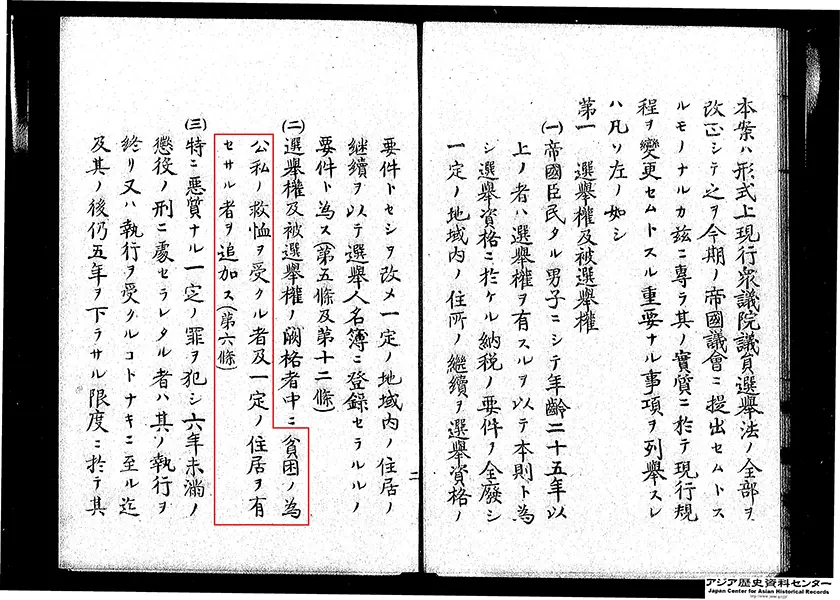 本案ハ形式上現行衆議院議員選擧法ノ全部ヲ
改正シテ之ヲ今期ノ帝國議會ニ提出セムトス
ルモノナルカ茲ニ專ラ其ノ實質ニ於テ現行規
程ヲ變更セムトスル重要ナル事項ヲ列擧スレ
ハ凡ソ左ノ如シ
第一 選擧權及被選擧權
(一)帝國臣民タル男子ニシテ年齡二十五年以
上ノ者ハ選擧權ヲ有スルヲ以テ本則ト為
シ選擧資格ニ於ケル納税ノ要件ヲ全廢シ
一定ノ地域内ノ住所ノ繼續ヲ選擧資格ノ
二
要件トセシヲ改メ一定ノ地域内ノ住居ノ
継續ヲ以テ選擧人名簿ニ登録セラルルノ
要件ト為ス(第五條及第十二條)
(二)選擧權及被選擧權ノ闕格者中ニ貧困ノ為
公私ノ救恤ヲ受クル者及一定ノ住居ヲ有
セサル者ヲ追加ス(第六條)
(三)特ニ悪質ナル一定ノ罪ヲ犯シ六年未滿ノ
懲役ノ刑ニ處セラレタル者ハ其ノ執行ヲ
終リ又ハ執行ヲ受クルコトナキニ至ル迄
及其ノ後仍五年ヲ下ラサル限度ニ於テ其
アジア歴史資料センター
Japan Center for Asian Historical Records